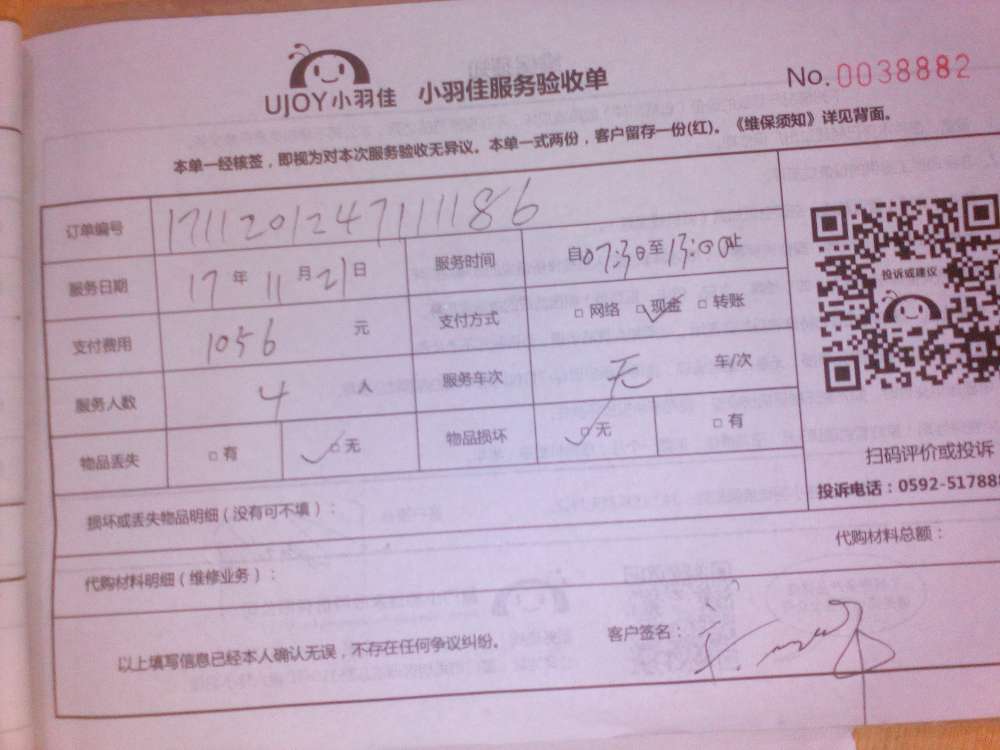 UJOY小羽佳 小羽佳服务验收单 No.0038882
本单一经核签，即视为对本次服务验收无异议。本单一式两份，客户留存一份(红)。《维保须知》详见背面。
订单编号 1711201247111186
服务日期 17年11月21日 服务时间 自07:30至13:00止
支付费用 1056元 支付方式 □网络 □现金 □转账
服务人数 4人 服务车次 无 车/次
物品丢失 □有 □无 物品损坏 □无 □有
投诉或建议
扫码评价或投诉
投诉电话：0592-51788
损坏或丢失物品明细（没有可不填）：
代购材料总额：
代购材料明细（维修业务）：
以上填写信息已经本人确认无误，不存在任何争议纠纷。 客户签名：